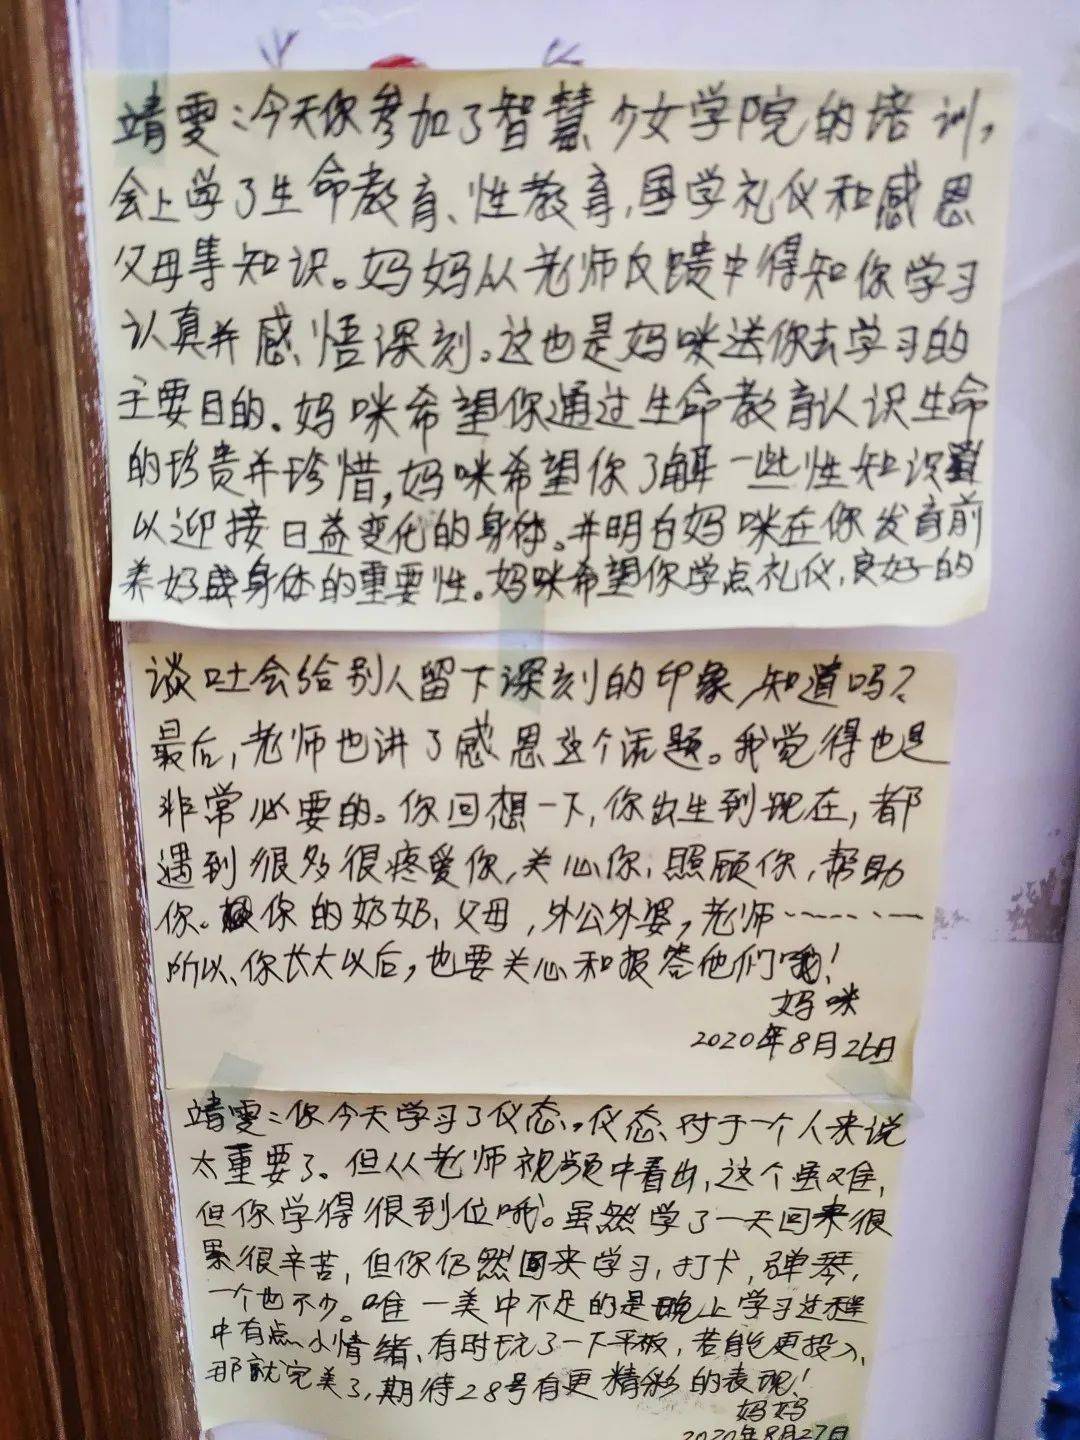 靖雯:今天你参加了智慧少女学院的培训,
会上学了生命教育、性教育,国学礼仪和感恩
父母等知识。妈妈从老师反馈中得知你学习
认真并感悟深刻。这也是妈咪送你去学习的
主要目的。妈咪希望你通过生命教育认识生命
的珍贵并珍惜,妈咪希望你了解一些性知识
以迎接日益变化的身体。并明白妈咪在你发育前
养好身体的重要性。妈咪希望你学点礼仪,良好的
谈吐会给别人留下深刻的印象,知道吗?
最后,老师也讲了感恩这个话题。我觉得也是
非常必要的。你回想一下,你出生到现在,都
遇到很多很疼爱你,关心你,照顾你,帮助
你。你的奶奶、父母,外公外婆,老师………
所以、你长大以后,也要关心和报答他们哦!
妈咪
2020年8月26日
靖雯:你今天学习了仪态。仪态对于一个人来说
太重要了。但从老师视频中看出,这个虽难,
但你学得很到位哦。虽然学了一天回来很
累很辛苦,但你仍然回来学习,打卡,弹琴,
一个也不少。唯一美中不足的是晚上学习过程
中有点小情绪、有时玩了一下平板,若能更投入,
那就完美了,期待28号有更精彩的表现!
妈妈
2020年8月27日